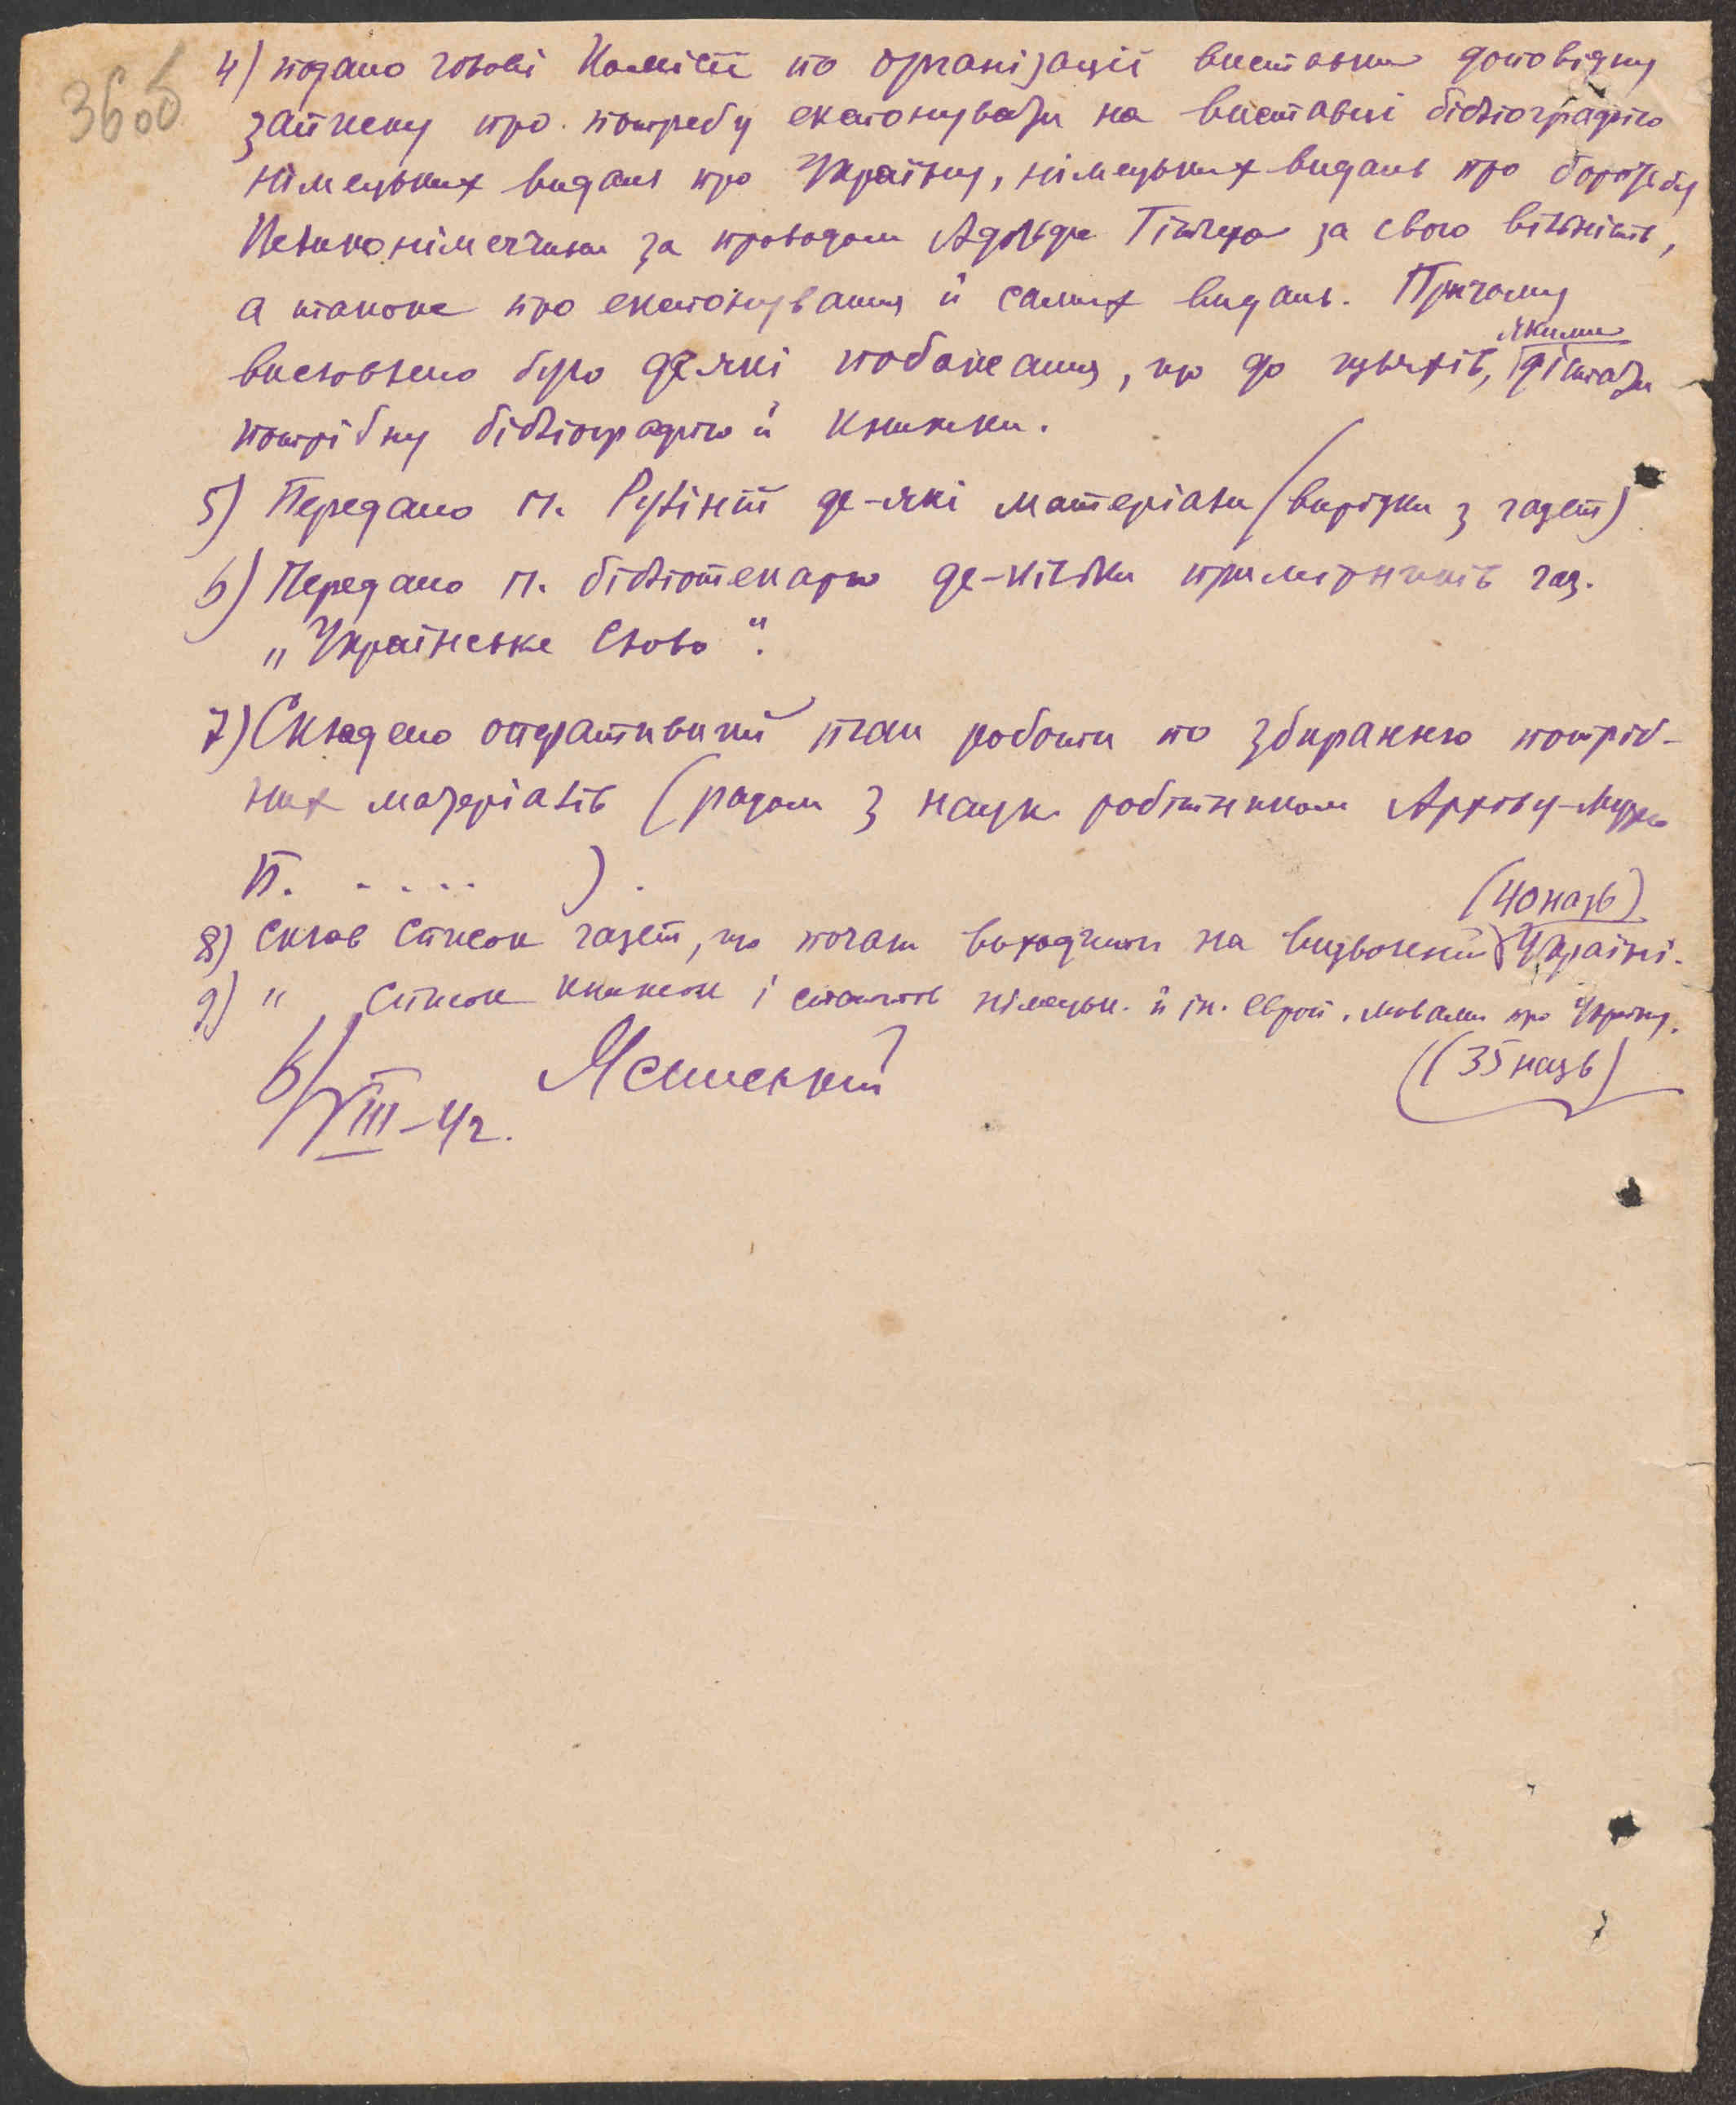 36об
4) подано голові Комісії по організації виставки доповідну
записку про потребу експонувати на виставці бібліографію
німецьких видань про Україну, німецьких видань про боротьбу
Великонімеччини за проводом Адольфа Гітлера за свою вільність,
а також про експонування й самих видань. Причому
висловлено було де які побажання, що до шляхів, якими дістати
потрібну бібліографію й книжки.
5) Передано п. де-які матеріали (вирізки з газет)
6) Передано п. бібліотекарю де-кілька примірників газ.
„Українське Слово".
7) Складено оперативний план роботи по збиранню потріб-
них матеріалів (разом з наук. робітником Архіву-Музею
П. . . . . ).
8) склав список газет, що почали виходити на визволеній Україні. (40 назв)
9) " список книжок і статтів німецьк. й ін. европ. мовами про Україну.
(35 назв)
6/VIII-42. Ясинський